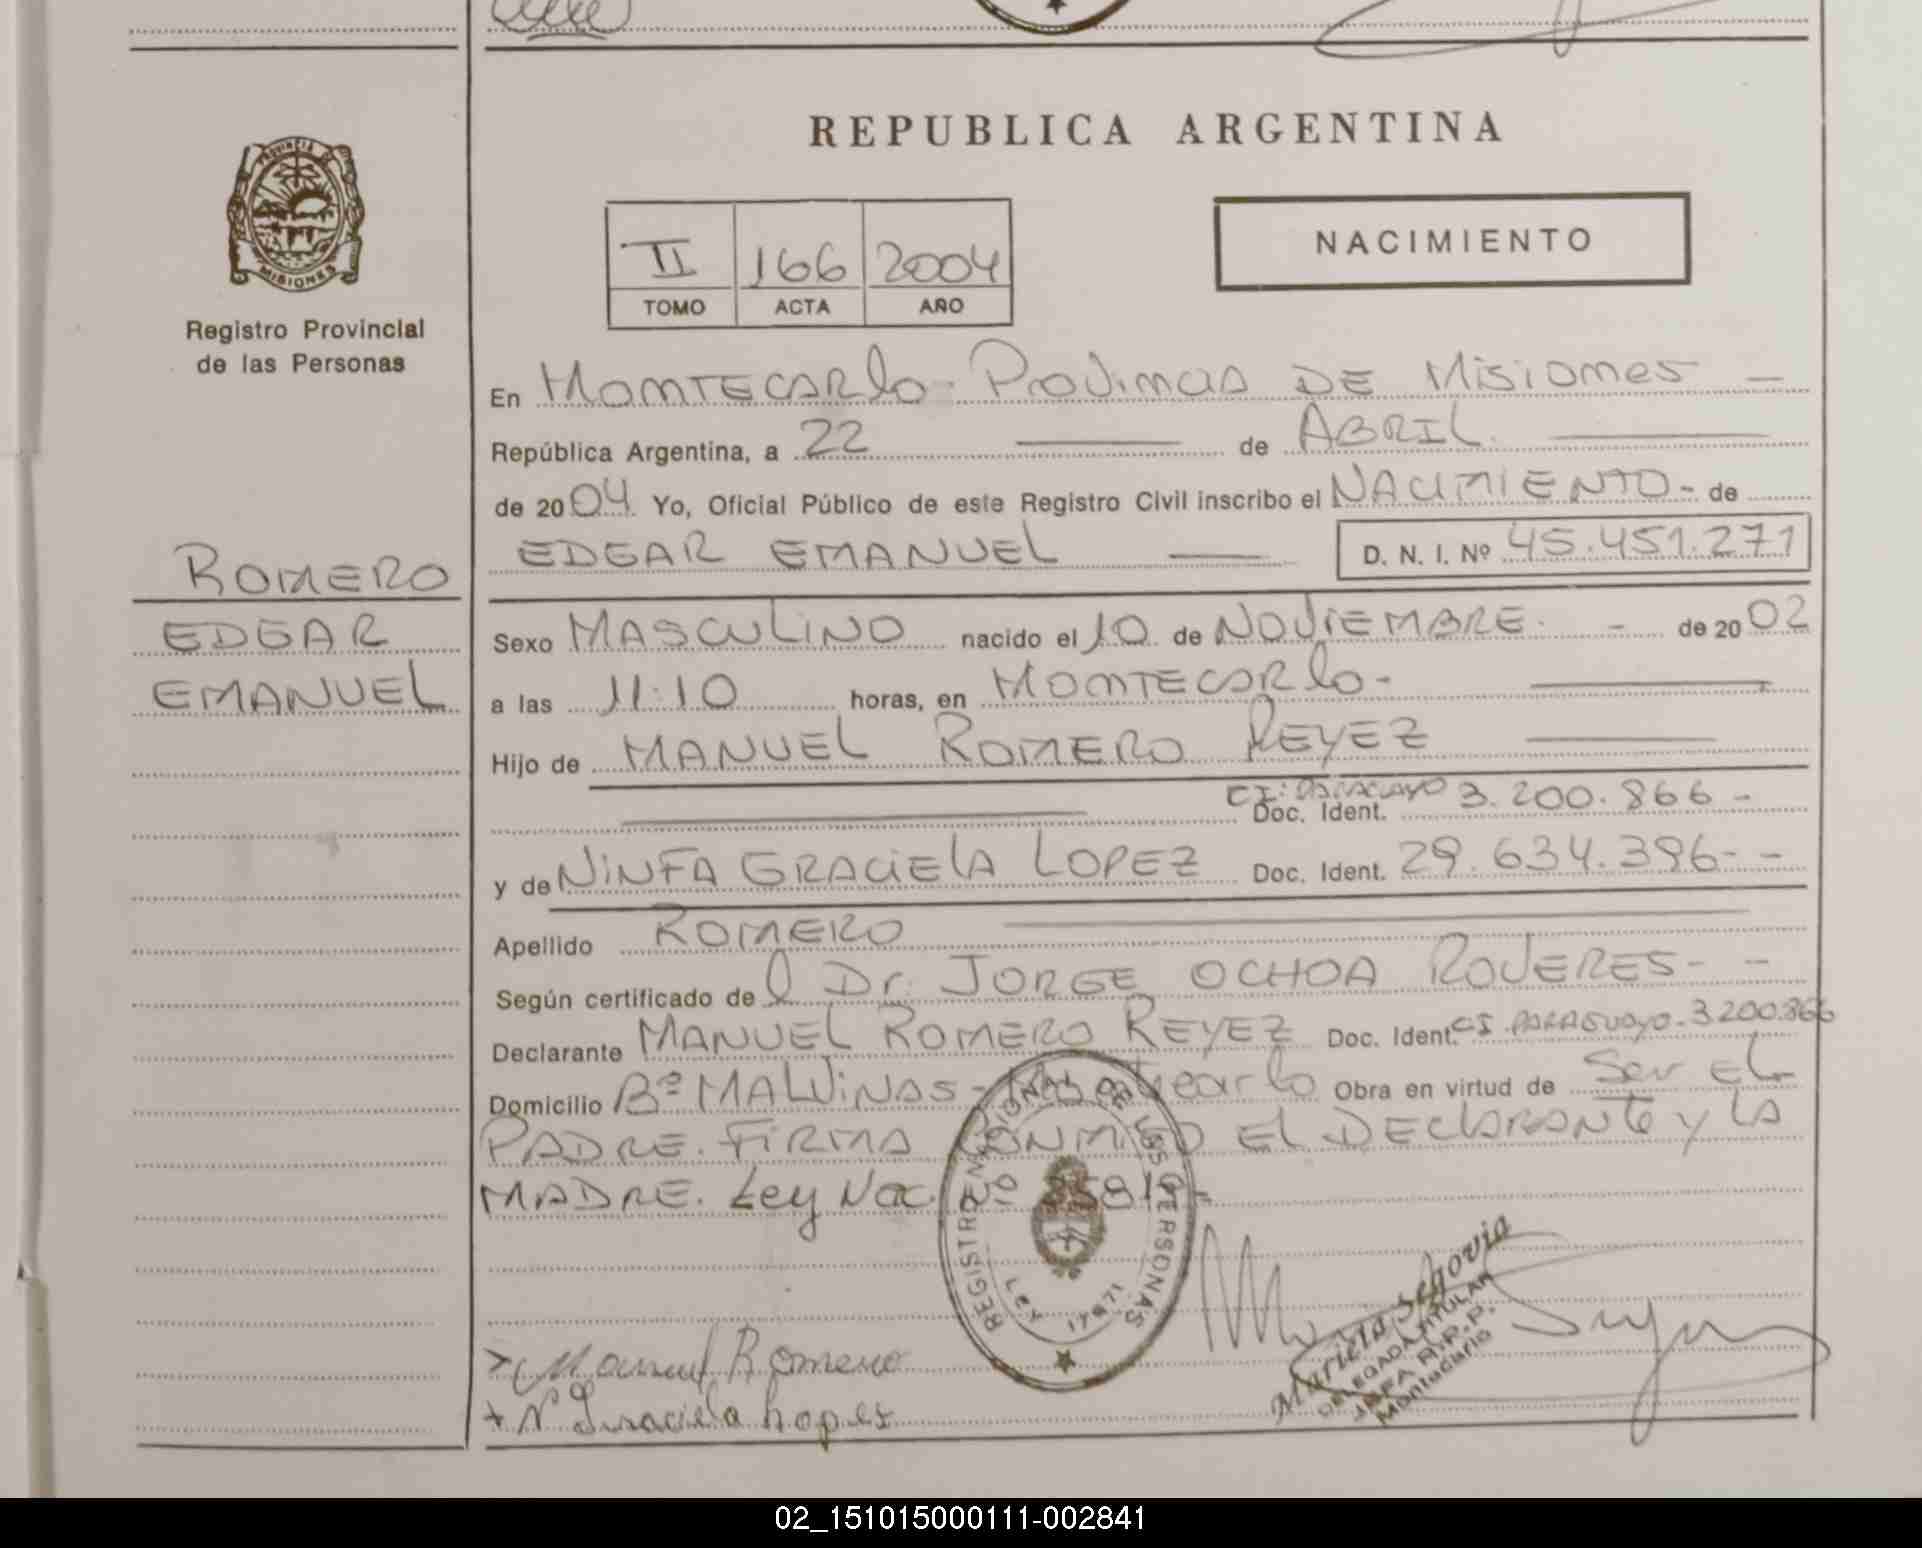 REPUBLICA ARGENTINA
PROVINCIA DE
MISIONES
Registro Provincial
de las Personas
II 166 2004
TOMO ACTA AÑO
NACIMIENTO
En MONTECARlo - PROVINCIA DE MISIONES -
República Argentina, a 22 de ABRIL.
de 2004 Yo, Oficial Público de este Registro Civil inscribo el NACIMIENTO - de
EDGAR EMANUEL D. N. I. Nº 45.451.271
ROMERO
EDGAR
EMANUEL
Sexo MASCULINO nacido el 10 de NOVIEMBRE. - de 2002
a las 11:10 horas, en MONTECARlo -
Hijo de MANUEL ROMERO REYEZ
CI: PARAGUAYO Doc. Ident. 3.200.866 -
y de NINFA GRACIELA LOPEZ Doc. Ident. 29.634.396 - -
Apellido ROMERO
Según certificado de l Dr. JORGE OCHOA ROVERES - -
Declarante MANUEL ROMERO REYEZ Doc. Ident. CI PARAGUAYO - 3.200.866
Domicilio Bº MALVINAS - Montecarlo Obra en virtud de Ser EL
PADRE. FIRMA CONMIGO El DECLARANTE y LA
MADRE. Ley Nac. Nº
REGISTRO NACIONAL DE LAS PERSONAS
LEY 17671
Manuel Romero
N Graciela Lopez
Mariela Segovia
DELEGADA TITULAR
JEFA R.P.P.
Montecarlo
02_151015000111-002841